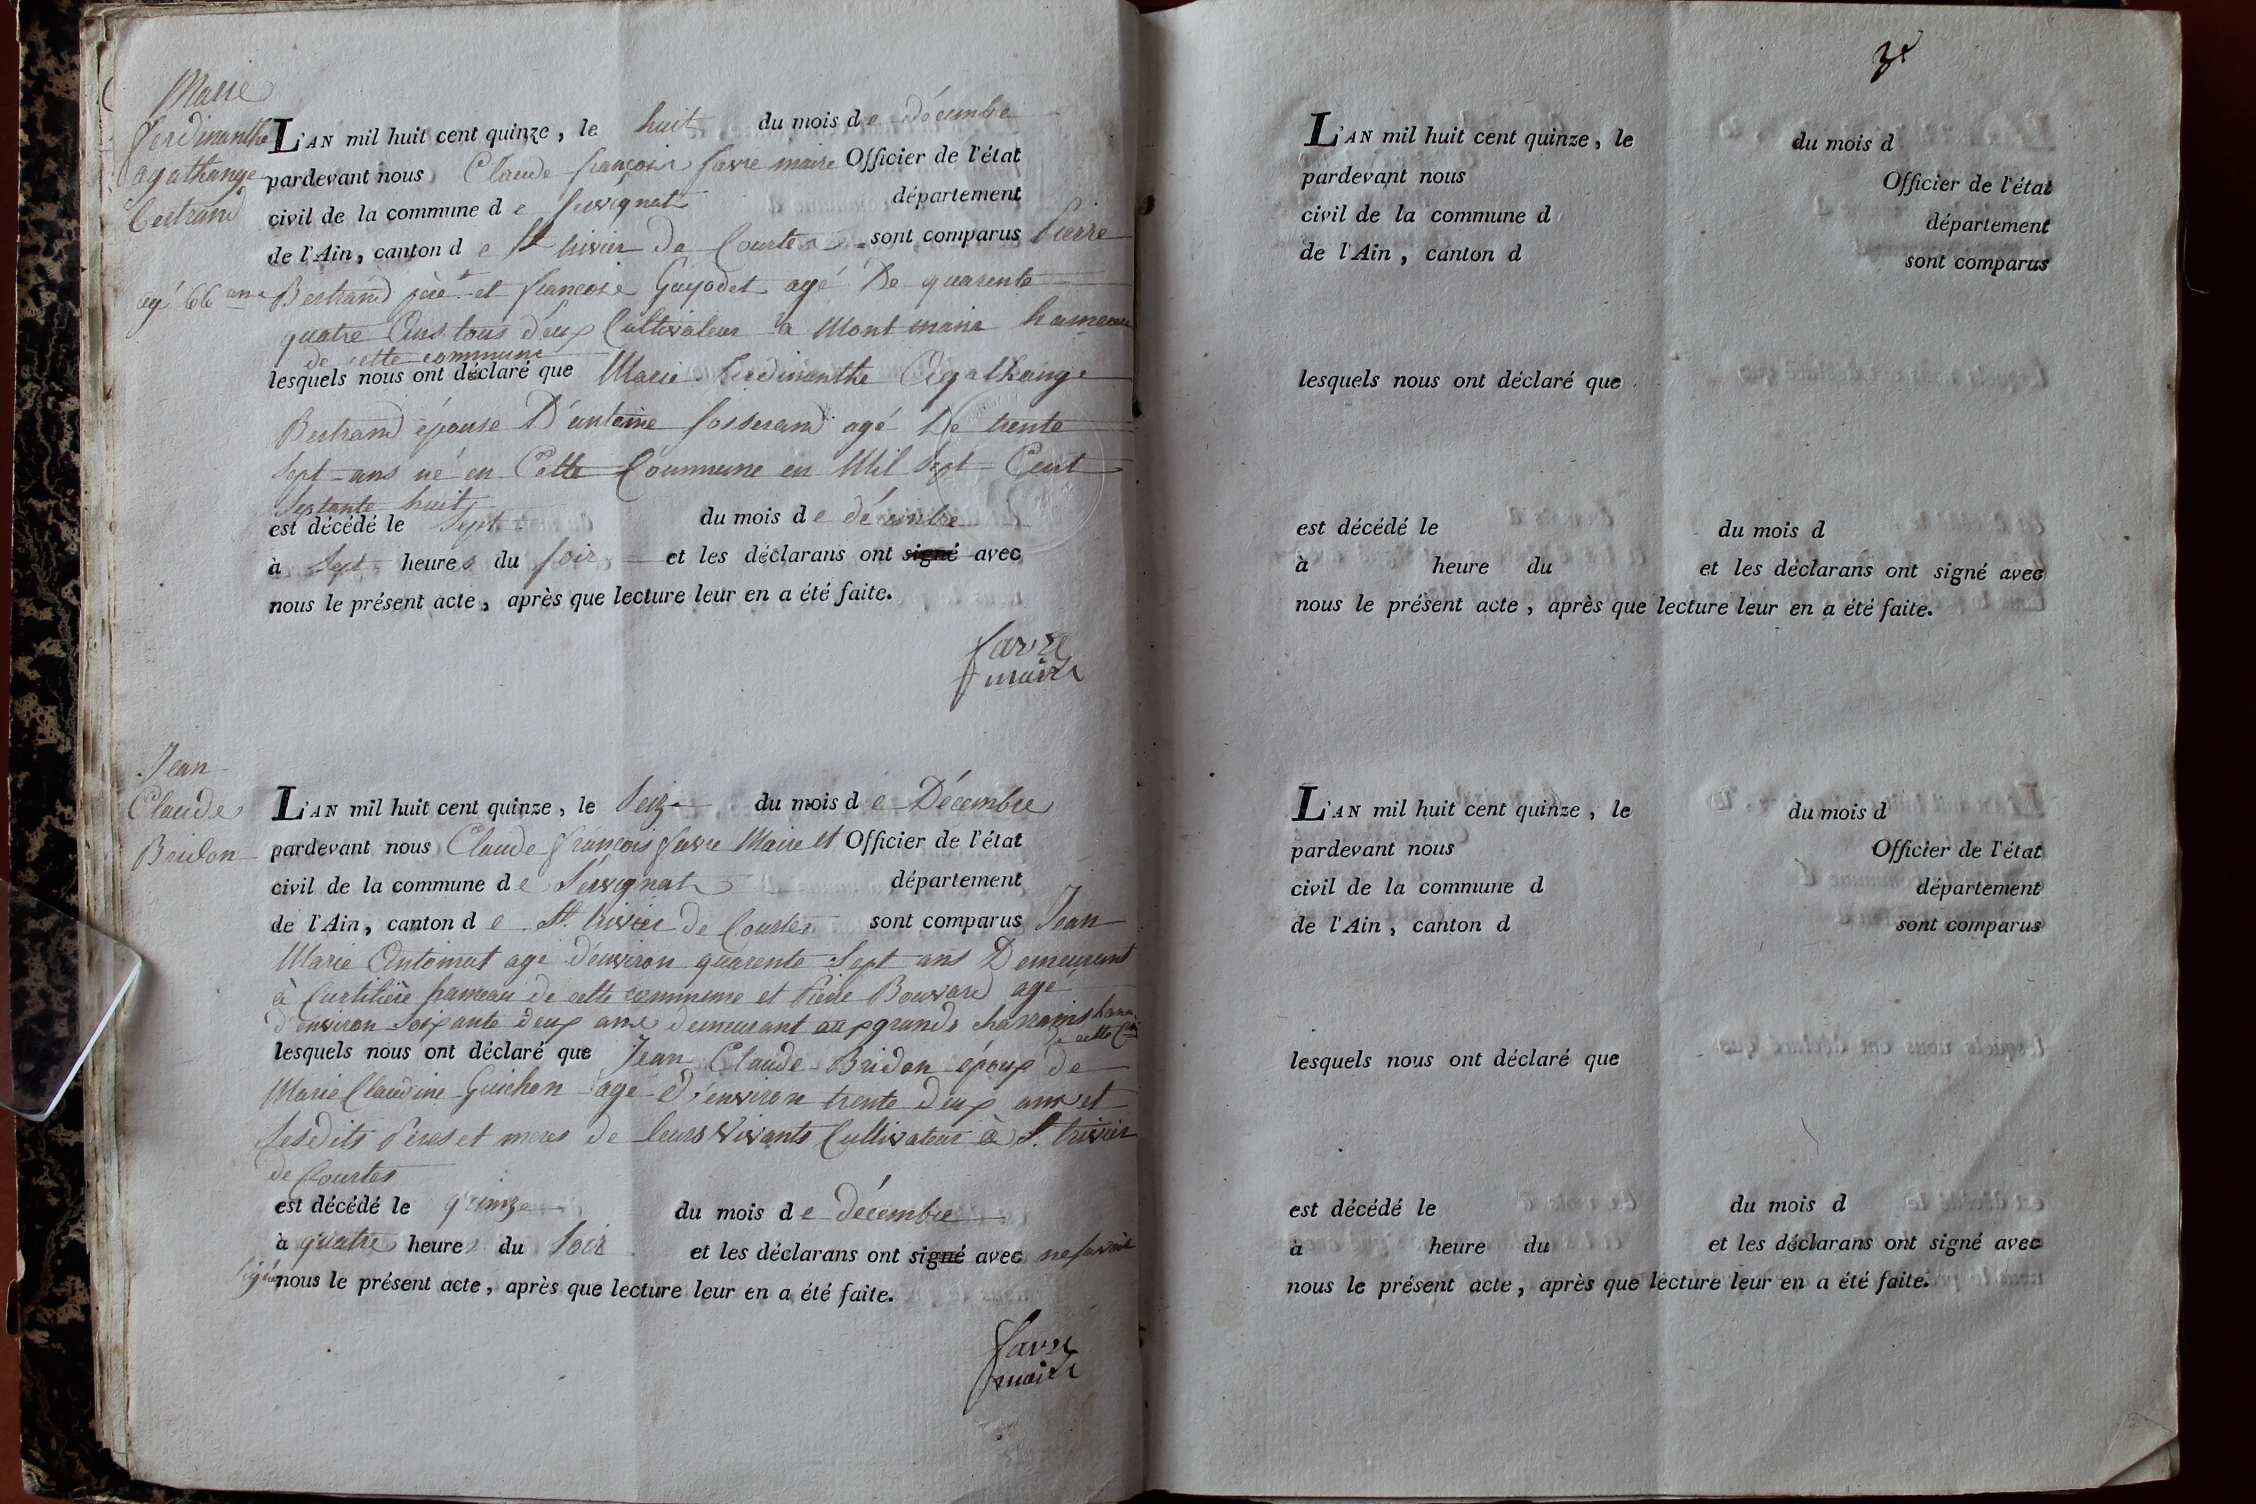 Marie
ferdinanthe
agathange
Bertrand
L'AN mil huit cent quinze, le huit du mois de décembre
pardevant nous Claude françois favre maire Officier de l'état
civil de la commune de Servignat département
de l'Ain, canton de St trivier de Courtes sont comparus Pierre
agé 66 ans
Bertrand père et françois Guyodet agé De quarente
quatre Ans tous deux Cultivateur a Montmain hameau
de cette commune
lesquels nous ont déclaré que Marie ferdinanthe Agathange
Bertrand épouse D'antoine Josserand agé De trente
Sept ans né en Cette Commune en Mil Sept Cent
Septante huit
est décédé le Sept du mois de décembre
à Sept heures du soir et les déclarans ont signé avec
nous le présent acte, après que lecture leur en a été faite.
favre
maire
Jean
Claude
Bridon
L'AN mil huit cent quinze, le Seize du mois de Décembre
pardevant nous Claude françois favre Maire et Officier de l'état
civil de la commune de Servignat département
de l'Ain, canton de St. trivier de Courtes sont comparus Jean
Marie Antoinat agé d'environ quarente Sept ans Demeurant
à Curtilière hameau de cette commune et Pierre Bouvard agé
d'environ Soixante deux ans demeurant aux grands charrains ham.
de cette
lesquels nous ont déclaré que Jean Claude Bridon époux de
Marie Claudine Guichon agé d'environ trente deux ans et
Sesdits Peres et meres de leurs Vivants Cultivateur à St. trivier
de Courtes
est décédé le quinze du mois de décembre
à quatre heures du Soir et les déclarans ont signé avec ne savoir
signer
nous le présent acte, après que lecture leur en a été faite.
favre
maire
L'AN mil huit cent quinze, le du mois d
pardevant nous Officier de l'état
civil de la commune d département
de l'Ain, canton d sont comparus
lesquels nous ont déclaré que
est décédé le du mois d
à heure du et les déclarans ont signé avec
nous le présent acte, après que lecture leur en a été faite.
L'AN mil huit cent quinze, le du mois d
pardevant nous Officier de l'état
civil de la commune d département
de l'Ain, canton d sont comparus
lesquels nous ont déclaré que
est décédé le du mois d
à heure du et les déclarans ont signé avec
nous le présent acte, après que lecture leur en a été faite.